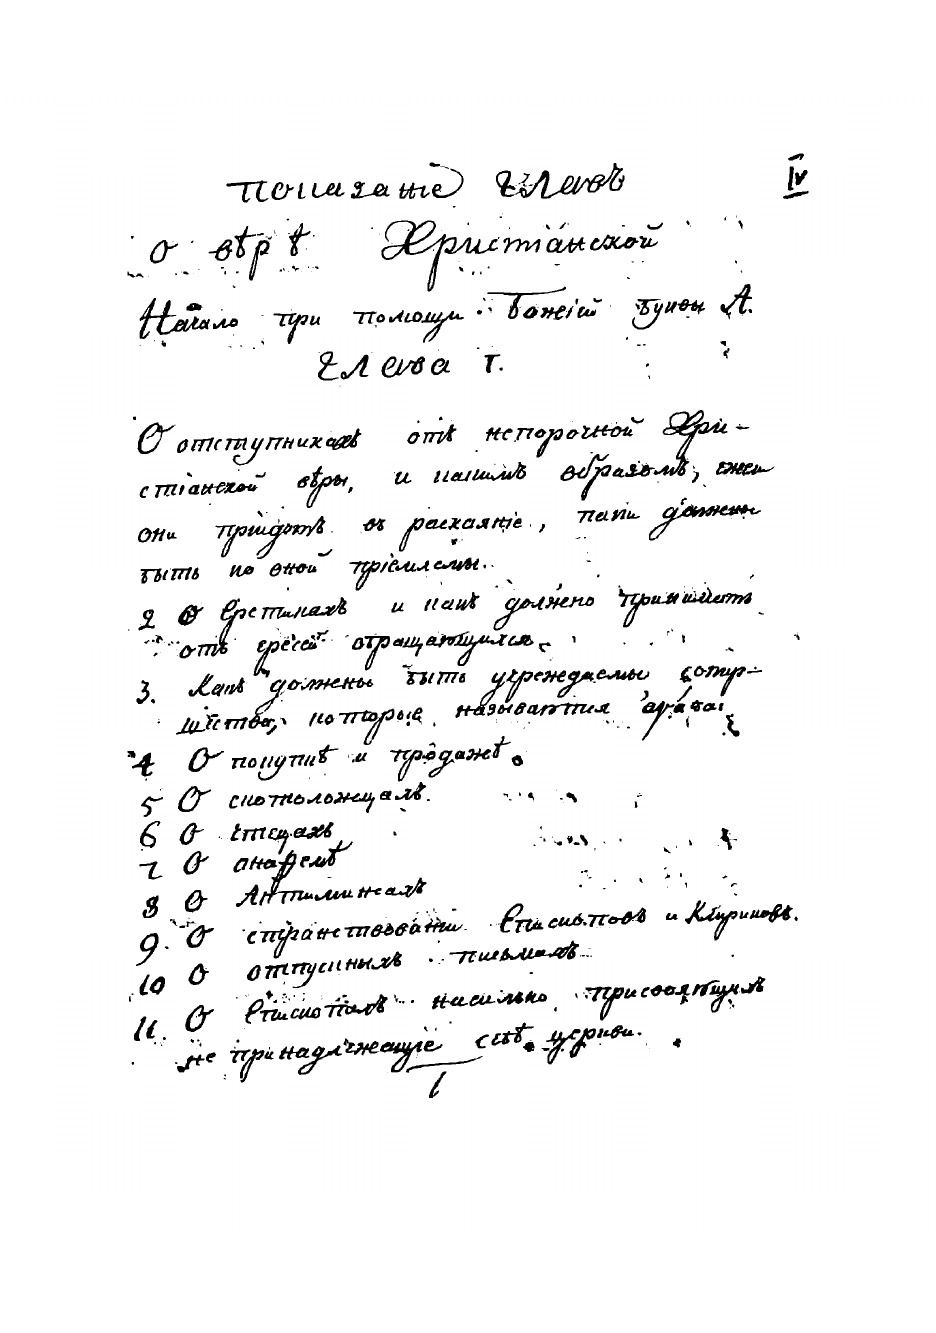 IV
Показаніе Главъ
о вѣрѣ Христіанской
Начало при помощи Божіей буквы А.
Глава 1.
О отступникахъ отъ непорочной Хри-
стіанской вѣры, и какимъ образомъ, ежели
они прійдутъ въ раскаяніе, паки должны
быть по оной пріемлемы.
2 О Еретикахъ и какъ должно принимать
отъ ересей обращающихся.
3. Какъ должны быть учреждаемы
которые называются
4 О покупкѣ и продажѣ.
5 О скотоложцахъ.
6 О чтецахъ
7 О анаѳемѣ
8 О Антиминсахъ
9. О странствовании Епископовъ и Клириковъ.
10 О отпускныхъ письмахъ
11. О Епископахъ насильно присвояющихъ
не принадлежащіе себѣ церкви.
1